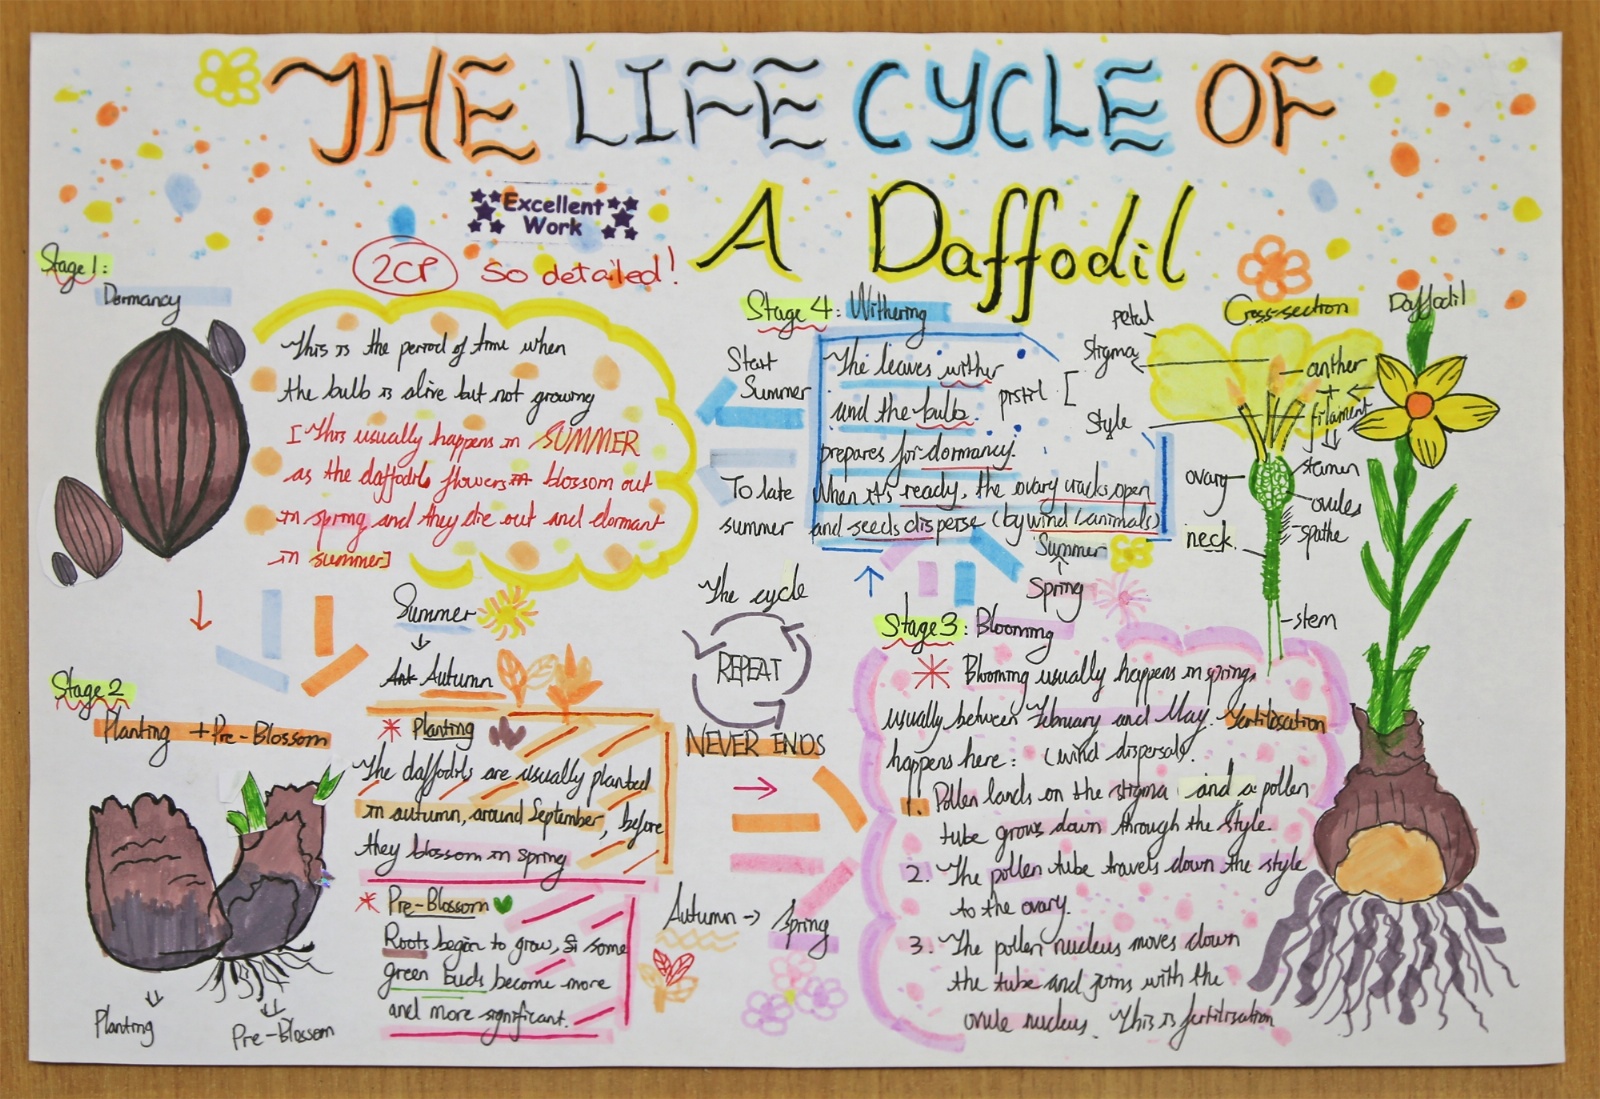 THE LIFE CYCLE OF
A Daffodil
Excellent
Work
2CP so detailed!
Stage 1:
Dormancy
This is the period of time when
the bulb is alive but not growing
[This usually happens in SUMMER
as the daffodils flowers blossom out
in spring and they die out and dormant
in summer]
Summer
Autumn
Stage 2
Planting + Pre-Blossom
* Planting
The daffodils are usually planted
in autumn, around September, before
they blossom in spring
* Pre-Blossom
Roots begin to grow, some
green buds become more
and more significant.
Planting
Pre-Blossom
The cycle
REPEAT
NEVER ENDS
Autumn → Spring
Stage 3: Blooming
Spring
Summer
* Blooming usually happens in spring,
usually between February and May. Fertilisation
happens here: (wind dispersal).
1. Pollen lands on the stigma and a pollen
tube grows down through the style.
2. The pollen tube travels down the style
to the ovary.
3. The pollen nucleus moves down
the tube and joins with the
ovule nucleus. This is fertilisation
Stage 4: Withering
The leaves wither
and the bulb
prepares for dormancy.
When it's ready, the ovary cracks open
and seeds disperse (by wind/animals)
Start
Summer
To late
summer
Cross-section
Daffodil
petal
stigma
pistil
style
anther
+
filament
stamen
ovary
ovules
spathe
neck
stem